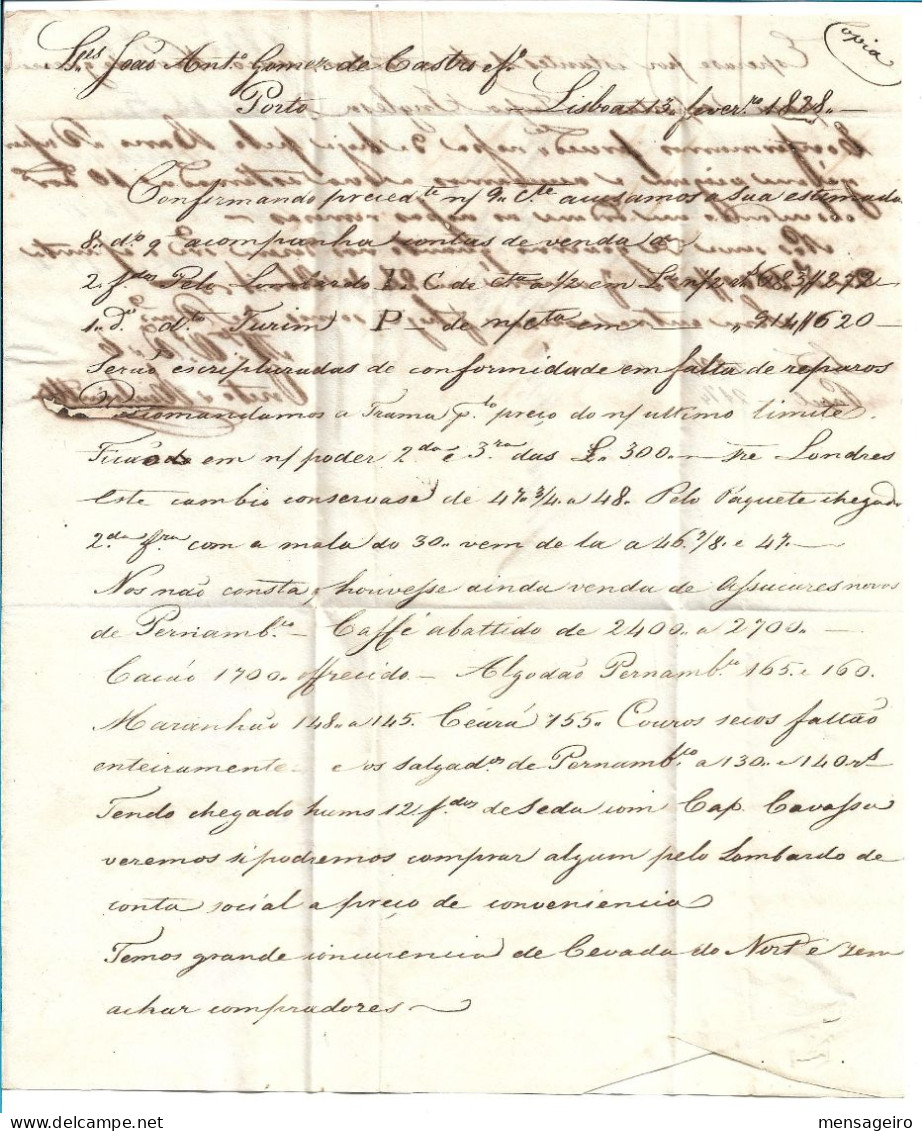 Copia
Snrs João Anto Gomez de Castro e fo
Porto Lisboa 13 feverro 1828
Confirmando precedte n/ 9 cte acusamos a Sua estimada
8 do q acompanha contas de venda de
2 fdos Pelo Lombardo C de cta a 1/2 em L n/ 1/2 683//272
1 Do do Turim P de n/ cta em " 914//620
Serão escripturadas de conformidade em falta de reparos
Recomandamos a Trama pto preço do n/ ultimo limite.
Ficão em n/ poder 2da e 3ra das L. 300 Londres
Este cambio conservase de 47 3/4 a 48. Pelo Paquete chegado
2da fra com a mala do 30 vem de la a 46 7/8 e 47
Nos não consta, houvesse ainda venda de Assucares novos
de Pernambco Caffé abattido de 2400 a 2700
Cacáo 1700 offrecido Algodão Pernambco 165 e 160.
Maranhão 148 a 145. Ceará 155 Couros secos faltão
enteiramente e os salgados de Pernambco a 130 e 140 rs
Tendo chegado huns 12 fdos de Seda com Cap. Cavassa
veremos si podremos comprar algum pelo Lombardo de
conta social a preço de conveniencia
Temos grande concurencia de Cevada do Norte e sem
achar compradores
mensageiro